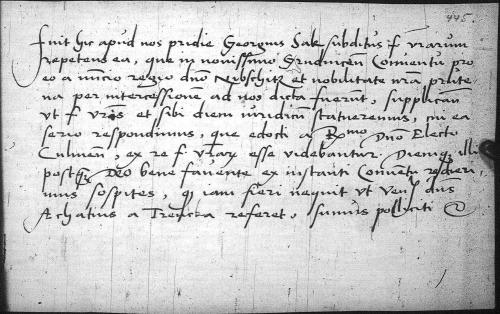 445.
Fuit hic apud nos pridie Georgius Sak subditus f vrarum
repetens ea, que in novissimo Grudnicen Conventu pro
eo a nuncio regio dno Nibschitz et nobilitate nra prute
na per intercessionem ad nos dicta fuerunt, supplican
ut f vras et sibi diem iuridicu statueremus, cui ea
serio respondimus, que edocti a Rmo Dno Electo
Culmen, ex re f vrarum esse videbantur. Diemq illi
postq Deo bene favente ex instanti Conventu redieri-
mus sospites, q iam fieri nequit ut Ven dns
Achatius a Trencka referet, sumus polliciti